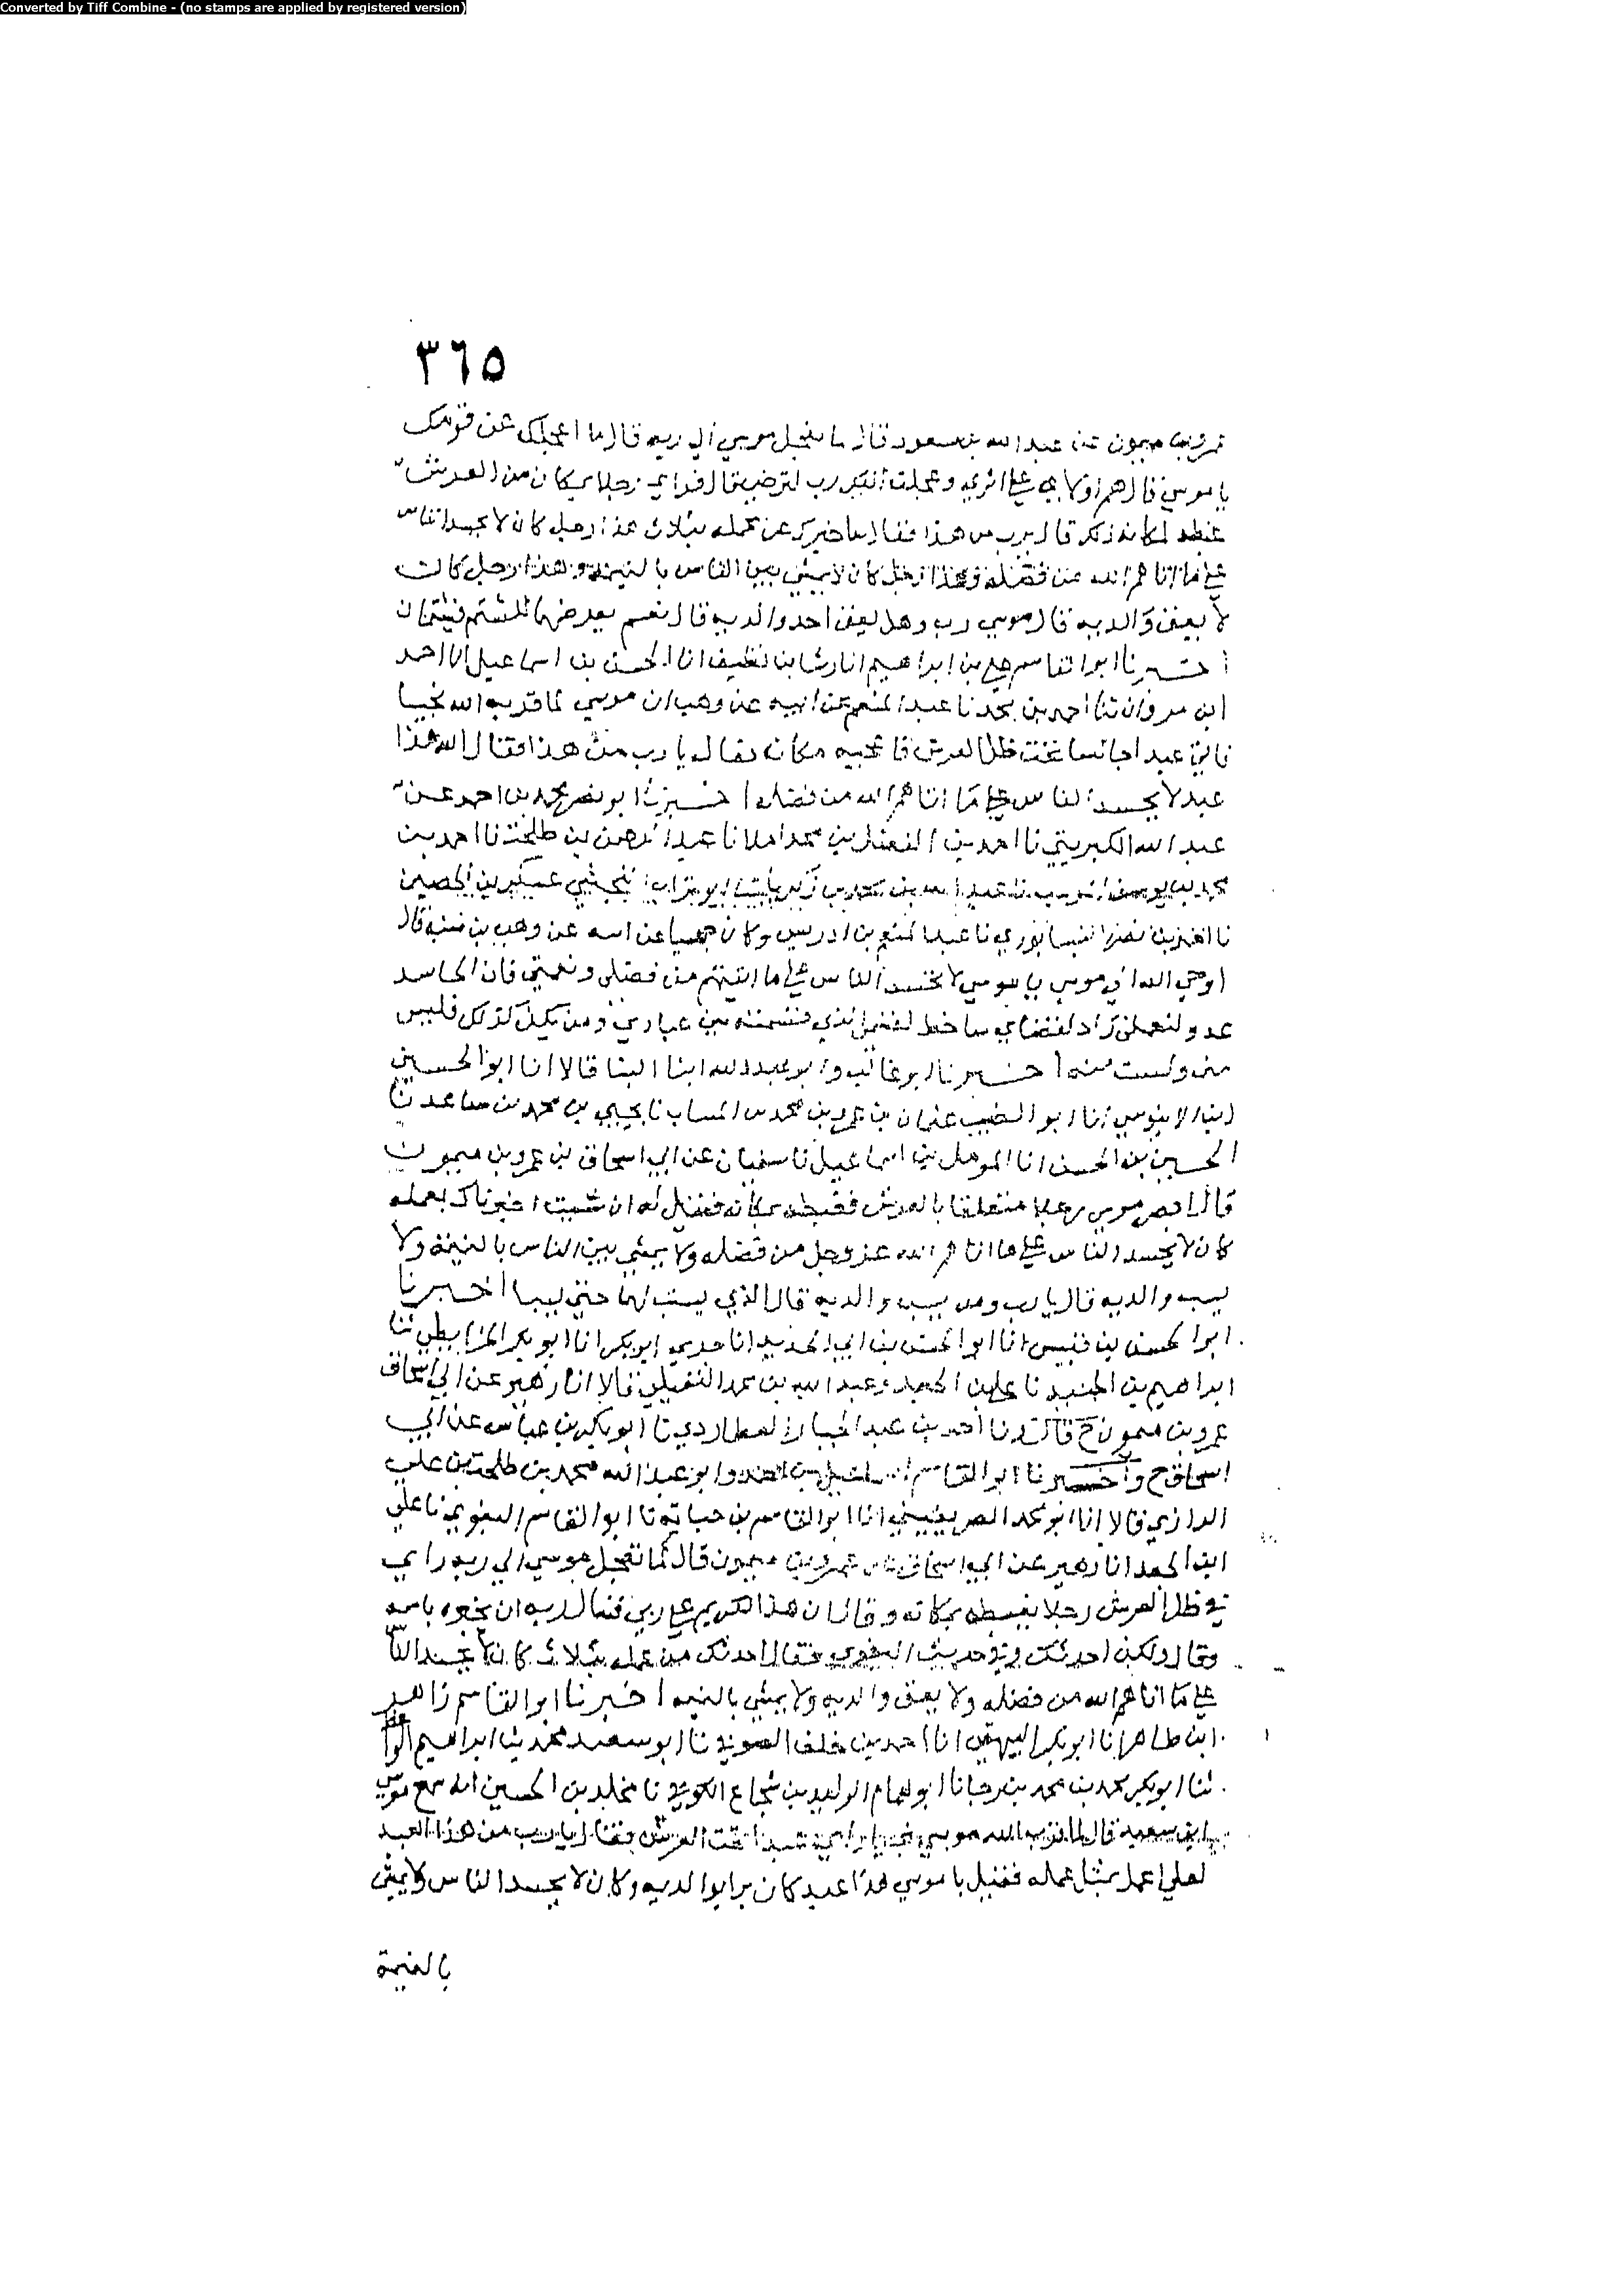 Converted by Tiff Combine - (no stamps are applied by registered version)
٣٦٥
عمرو بن ميمون عن عبد الله بن مسعود قال لما تعجل موسى الى ربه قال ما اعجلك عن قومك
يا موسى قال هم اولاء على اثري وعجلت اليك رب لترضى قال فراى رجلا مكان من العرش
غبطه لمكانه ذلك قال يرب من هذا فقال ساخبرك عن عمله بثلاث هذا رجل كان لا يحسد الناس
على ما اتاهم الله من فضله وهذا رجل كان لا يمشي بين الناس بالنميمة وهذا رجل كان
لا يعق والديه قال موسى رب وهل يعق احد والديه قال نعم يعرضهما للشتم فيشتمان
اخبرنا ابوا القاسم علي بن ابراهيم انا رشا بن نظيف انا الحسن بن اسماعيل انا احمد
ابن مروان ثنا احمد بن محمد نا عبد المنعم عن ابيه عن وهب ان موسى لما قربه الله نجيا
فاى عبدا جالسا تحت ظل العرش فاعجبه مكانه فقال يا رب من هذا فقال الله هذا
عبد لا يحسد الناس على ما اتاهم الله من فضله اخبرنا ابو نصر محمد بن احمد عن
عبد الله الكبريتي نا احمد بن الفضل بن محمد املا نا عبد الرحمن بن طلحة نا احمد بن
محمد بن يوسف نا عبد الله بن محمد بن زكريا ثنا ابو تراب النخشبي عسكر بن الحصين
نا احمد بن نصر النيسابوري نا عبد المنعم بن ادريس وكان عن ابيه عن وهب بن منبه قال
اوحى الله الى موسى يا موسى لا تحسد الناس على ما اتيتهم من فضلي ونعمتي فان الحاسد
عدو لنعمتي راد لقضاي ساخط لقسمي الذي قسمته بين عبادي ومن يكن كذلك فليس
مني ولست منه اخبرنا ابو غالب وابو عبد الله ابنا البنا قالا انا ابو الحسين
ابن الابنوسي انا ابو الطيب عثمان بن عمرو بن محمد بن المنتاب نا يحيى بن محمد بن صاعد نا
الحسين بن الحسن انا المومل بن اسماعيل نا سفيان عن ابي اسحاق بن عمرو بن ميمون
قال ابصر موسى رجلا متعلقا بالعرش فغبطه بمكانه فقيل له ان شيت اخبرناك بعمله
كان لا يحسد الناس على ما اتاهم الله عز وجل من فضله ولا يمشي بين الناس بالنميمة ولا
يسب والديه قال يا رب ومن يسب والديه قال الذي يستب لهما حتى يسبا اخبرنا
ابو الحسن بن قبيس انا ابو الحسن بن ابي الحديد انا جدي ابو بكر انا ابو بكر الخرايطي ثنا
ابراهيم بن الجنيد نا علي بن الجعد وعبد الله بن محمد النفيلي قالا انا زهير عن ابي اسحاق
عمرو بن ميمون ح قال ونا احمد بن عبد الجبار العطاردي نا ابو بكر بن عياش عن ابي
اسحاق ح واخبرنا ابو القاسم اسماعيل بن احمد وابو عبد الله محمد بن طلحة بن علي
الرازي قالا انا ابو محمد الصريفيني انا ابو القاسم بن حبابة نا ابو القاسم البغوي نا علي
ابن الجعد انا زهير عن ابي اسحاق عن عمرو بن ميمون قال لما تعجل موسى الى ربه راى
في ظل العرش رجلا يغبطه بمكانه وقال ان هذا لكريم على ربي فسال ربه ان يخبره باسمه
وقال ولكن احدثك وفي حديث البغوي فقال احدثك من عمله بثلاث كان لا يحسد الناس
على ما اتاهم الله من فضله ولا يعق والديه ولا يمشي بالنميمه اخبرنا ابو القاسم زاهر
ابن طاهر انا ابو بكر البيهقي انا احمد بن خلف الصوفي نا ابو سعيد محمد بن ابراهيم الواعظ
ثنا ابو بكر محمد بن محمد بن رجا نا ابو همام الوليد بن شجاع الكوفي نا مخلد بن الحسين انه سمع موسى
ابن سعيد قال لما قرب الله موسى نجيا راى عبدا تحت العرش فقال يا رب من هذا العبد
لعلي اعمل بمثل عمله فقيل يا موسى هذا عبد كان برا بوالديه وكان لا يحسد الناس ولا يمشي
بالنميمة